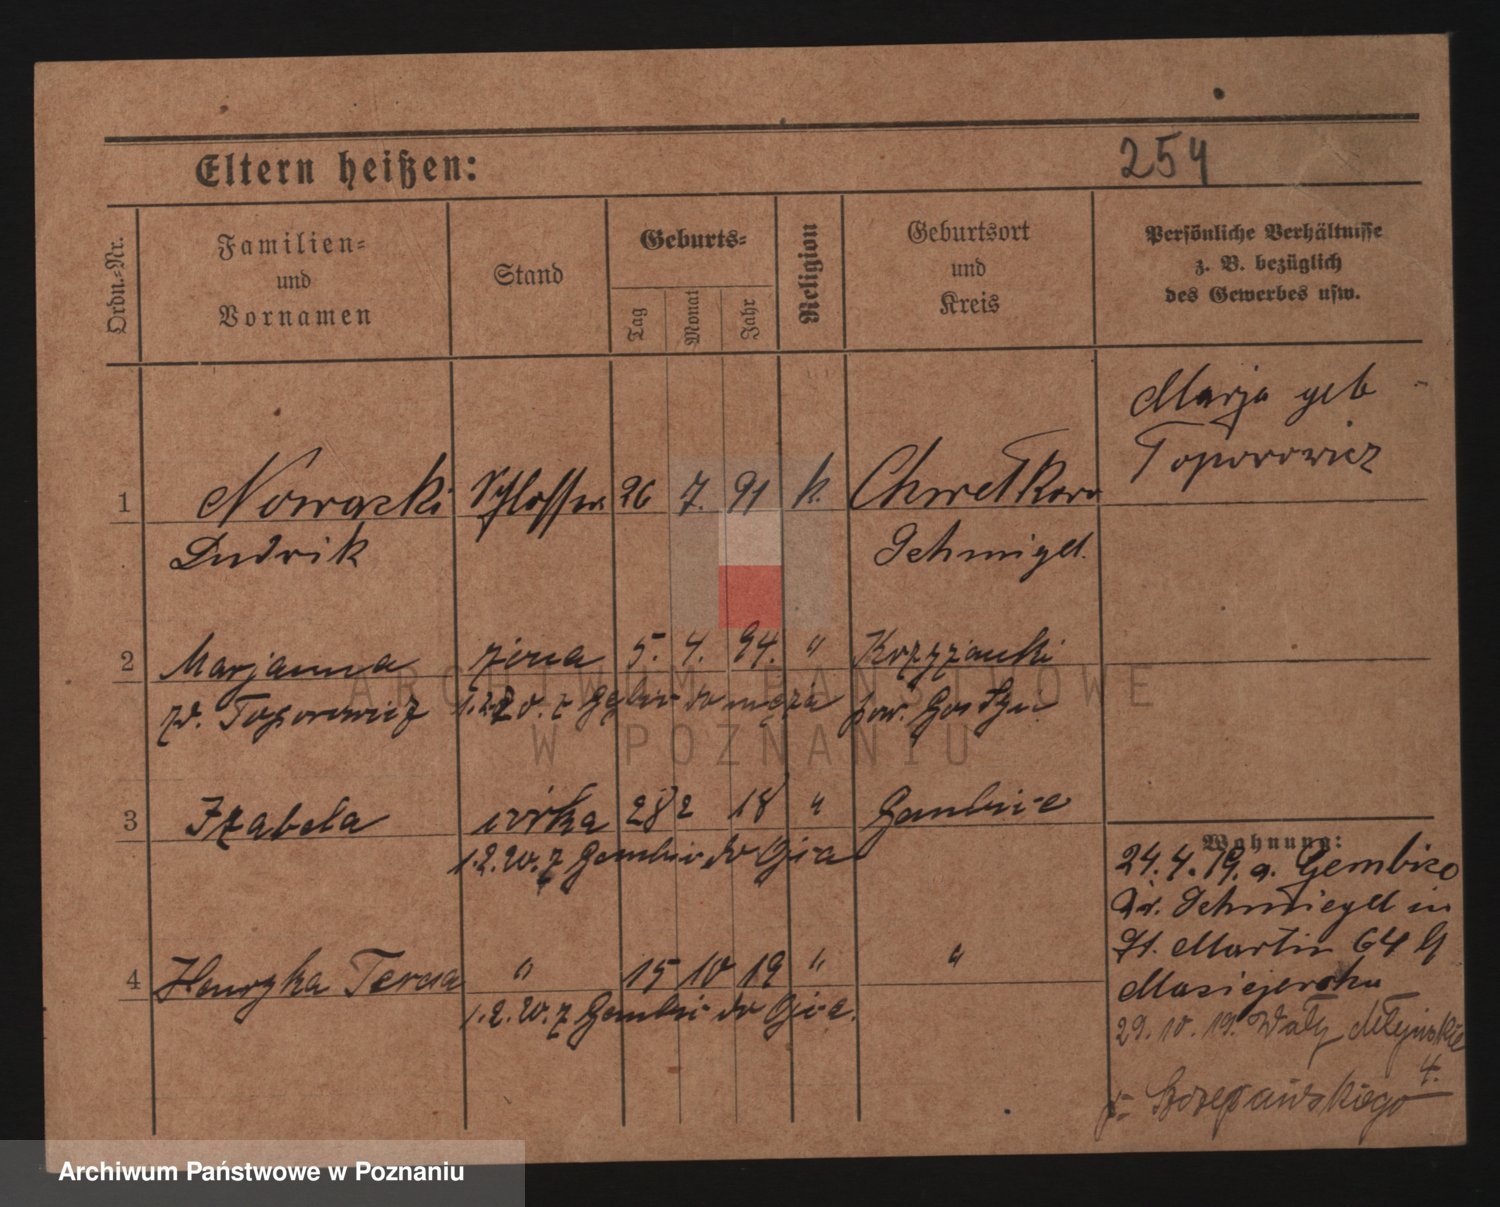 Eltern heißen:
254
Ordn.-Nr.
Familien-
und
Vornamen
Stand
Geburts-
Tag
Monat
Jahr
Religion
Geburtsort
und
Kreis
Persönliche Verhältnisse
z. B. bezüglich
des Gewerbes usw.
Marja geb
Toporowicz
1 Nowacki Schlosser 26 7. 91 k.
Ludwik Schmigel.
2 Marjanna żona 5. 4. 94. "
zd. Toporowicz do męża pow. Gostyń
3 Izabela córka 28 2 18 " Gembice
1.2.20. z Gembic do
Wohnung:
24.4.19. a. Gembice
Kr. Schmiegel in
St. Martin 64 b
29.10.19. Wały Młyńskie
4.
p. Szczepańskiego
4 Teresa " 15 10 19 " "
1.2.20. z Gembic do
ARCHIWUM PAŃSTWOWE
W POZNANIU
Archiwum Państwowe w Poznaniu